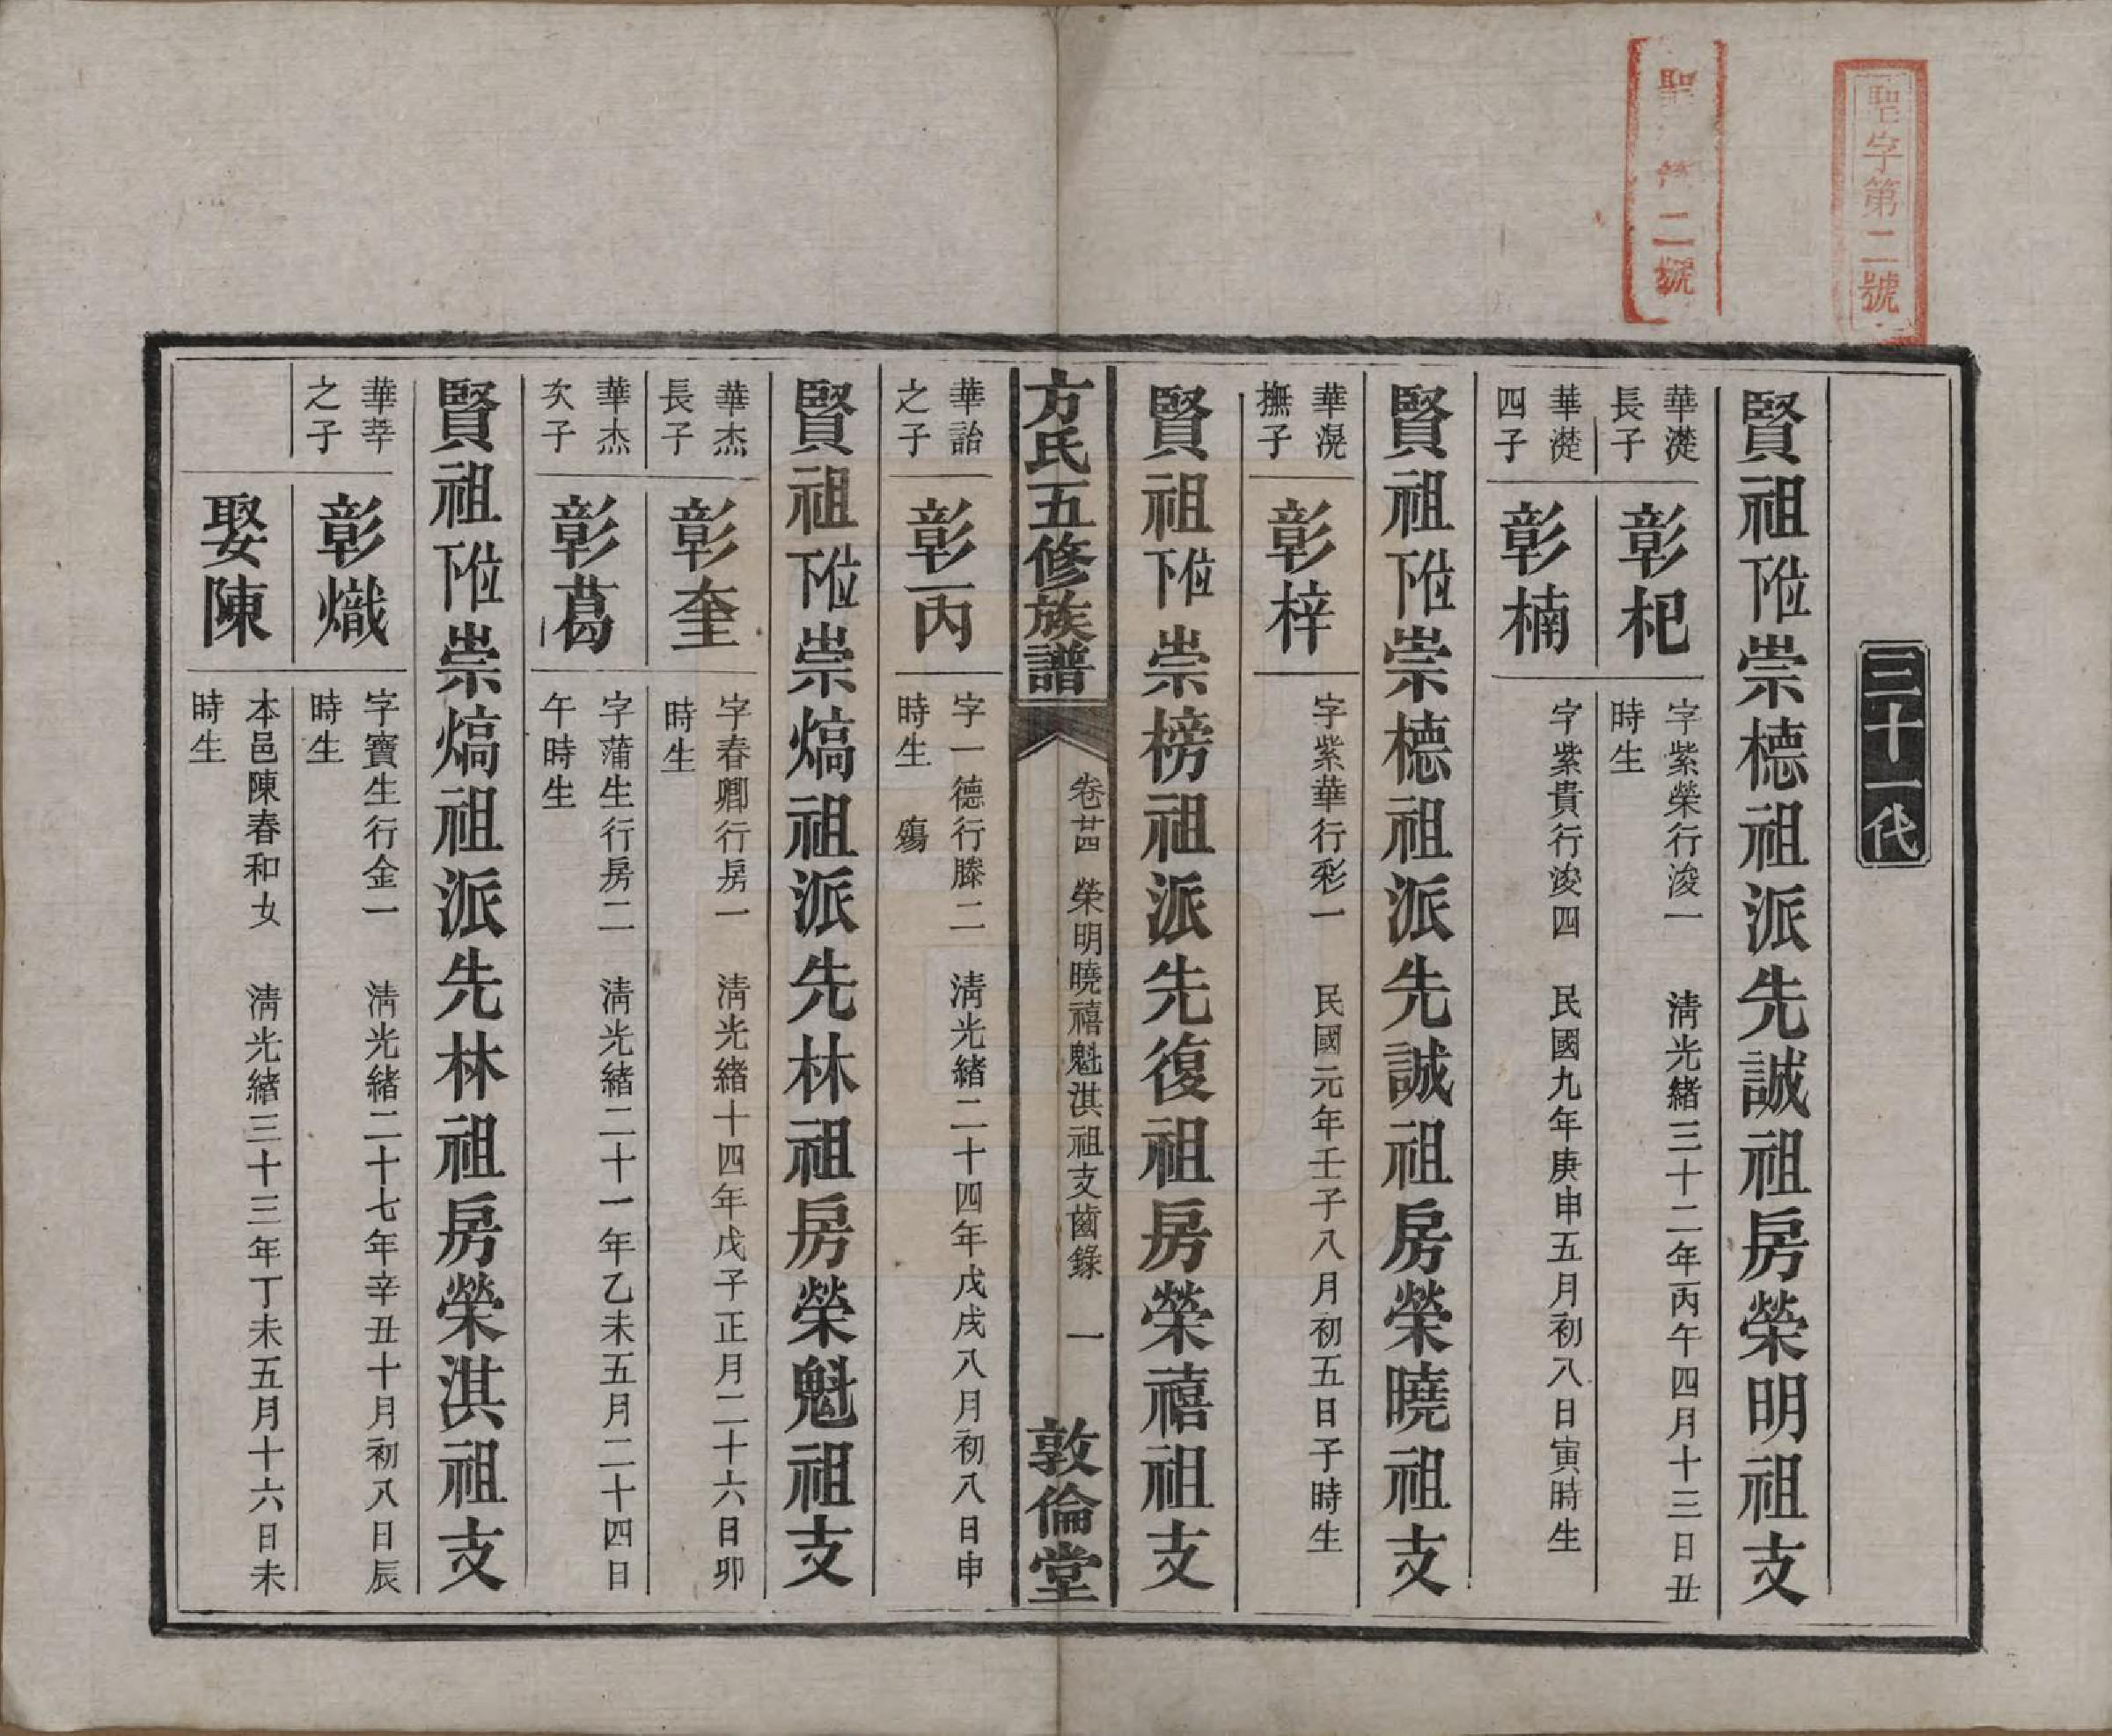 聖字第二號
聖 第二號
三十一代
賢祖下位崇標祖派先誠祖房榮明祖支
華濋長子 彰杞 字紫榮行浚一 清光緒三十二年丙午四月十三日丑時生
華濋四子 彰楠 字紫貴行浚四 民國九年庚申五月初八日寅時生
賢祖下位崇標祖派先誠祖房榮曉祖支
華滉撫子 彰梓 字紫華行彩一 民國元年壬子八月初五日子時生
賢祖下位崇榜祖派先復祖房榮禧祖支
方氏五修族譜 卷廿四 榮明曉禧魁淇祖支齒錄 一 敦倫堂
華詒之子 彰丙 字一德行滕二 清光緒二十四年戊戌八月初八日申時生 殤
賢祖下位崇熇祖派先林祖房榮魁祖支
華杰長子 彰奎 字春卿行房一 清光緒十四年戊子正月二十六日卯時生
華杰次子 彰葛 字蒲生行房二 清光緒二十一年乙未五月二十四日午時生
賢祖下位崇熇祖派先林祖房榮淇祖支
華莘之子 彰熾 字寶生行金一 清光緒二十七年辛丑十月初八日辰時生
娶陳 本邑陳春和女 清光緒三十三年丁未五月十六日未時生